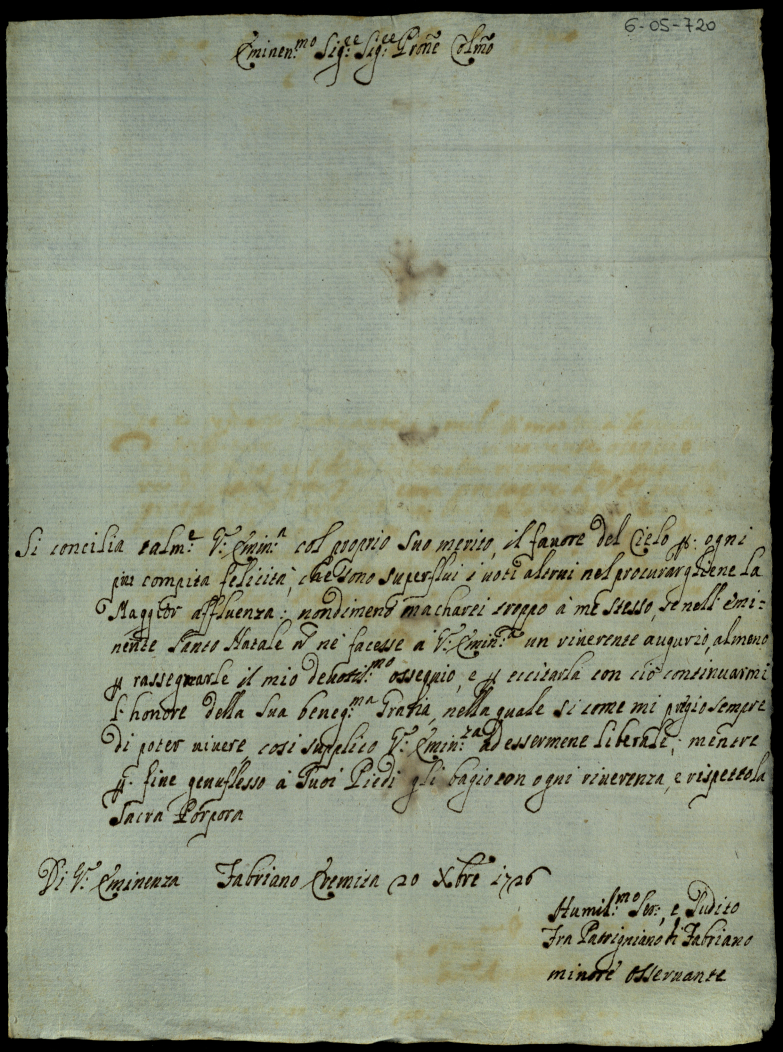 6-05-720
Eminen.mo Sig.re Sig.re Prõne Colmo
Si concilia talm.e V.a Emin.a col proprio suo merito, il favore del Cielo p. ogni
piu compita felicità, che sono superflui i voti altrui nel procurargliene la
Maggior affluenza: nondimeno macharei troppo à me stesso, se nell'emi-
nente Santo Natale nõ ne facesse a V.a Emin.za un riverente augurio, almeno
p rassegnarle il mio devotis.mo ossequio, e p eccitarla con ciò continuarmi
l'honore della sua benig.ma Grazia, nella quale si come mi pregio sempre
di poter vivere così supplico V.a Emin.za ad essermene liberale; mentre
p. fine genuflesso à Suoi Piedi gli bagio con ogni riverenza, e rispetto la
Sacra Porpora
Di V.a Eminenza Fabriano Eremita 20 Xbre 1726
Humil.mo Ser.e, e Sudito
Fra Patrigniano di Fabriano
minore Osservante